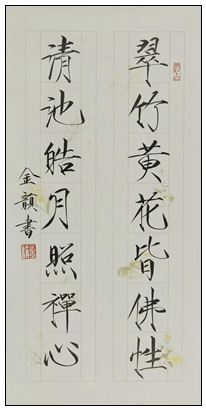 翠竹黄花皆佛性
清池皓月照禪心
金韻書